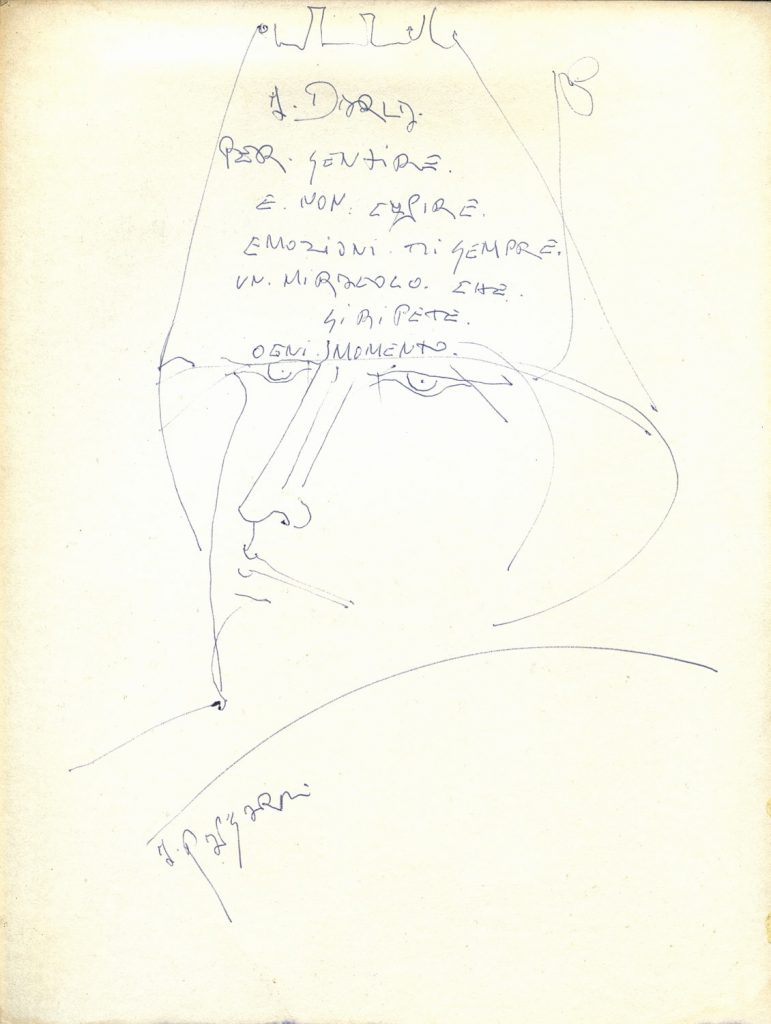 PER. SENTIRE.
E. NON. CAPIRE.
EMOZIONI. SEMPRE.
UN. MIRACOLO. CHE.
SI RIPETE.
OGNI. MOMENTO.